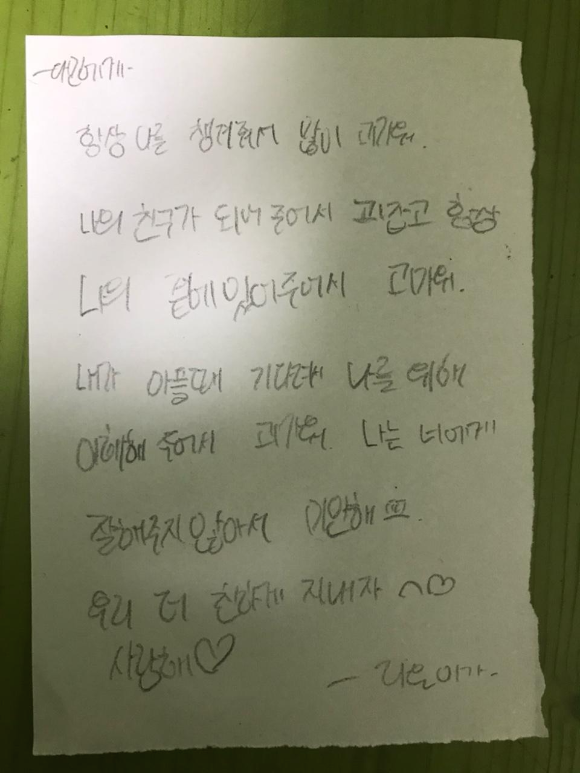 항상 나를 챙겨줘서 많이 고마워.
나의 친구가 되어 주어서 고맙고 항상
나의 곁에 있어주어서 고마워.
내가 아플때 기다려 나를 위해
이해해 주어서 고마워. 나는 너에게
잘해주지 않아서 미안해 ㅠㅠ.
우리 더 친하게 지내자 ^♡
사랑해♡